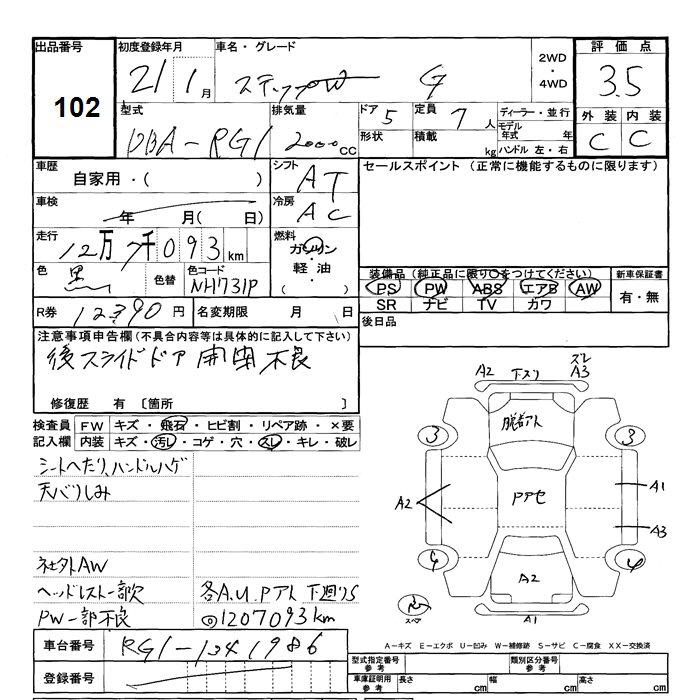 出品番号 102
初度登録年月 21 1月
車名・グレード ステップW G
2WD・4WD
評価点 3.5
型式 DBA-RG1
排気量 2000cc
ドア 5
形状
定員 7人
積載 kg
ディーラー・並行
モデル年式 年
ハンドル 左・右
外装 内装
C C
車歴 自家用・( )
シフト AT
セールスポイント (正常に機能するものに限ります)
車検 年 月( 日)
冷房 AC
走行 12万7千093km
燃料 ガソリン・軽油・
色 黒
色替
色コード NH731P
装備品(純正品に限り○をつけてください)
PS PW ABS エアB AW
SR ナビ TV カワ
新車保証書 有・無
R券 12390円
名変期限 月 日
後日品
注意事項申告欄(不具合内容等は具体的に記入して下さい)
後スライドドア開閉不良
修復歴 有 〔箇所 〕
検査員記入欄
FW キズ・飛石・ヒビ割・リペア跡・×要
内装 キズ・汚レ・コゲ・穴・スレ・キレ・破レ
シートヘたり、ハンドルハゲ
天バリしみ
社外AW
ヘッドレスト一部欠
各A.U.Pアト 下廻りS
PW一部不良
◎1207093km
A2 下スリ ズレ A3
脱着アト
3 3
PアセA1
A2
A3
4 4
A2
スペア
A1
車台番号 RG1-1041986
登録番号
A-キズ E-エクボ U-凹み W-補修跡 S-サビ C-腐食 XX-交換済
型式指定番号 参考
類別区分番号 参考
車庫証明用 参考
長さ cm 幅 cm 高さ cm